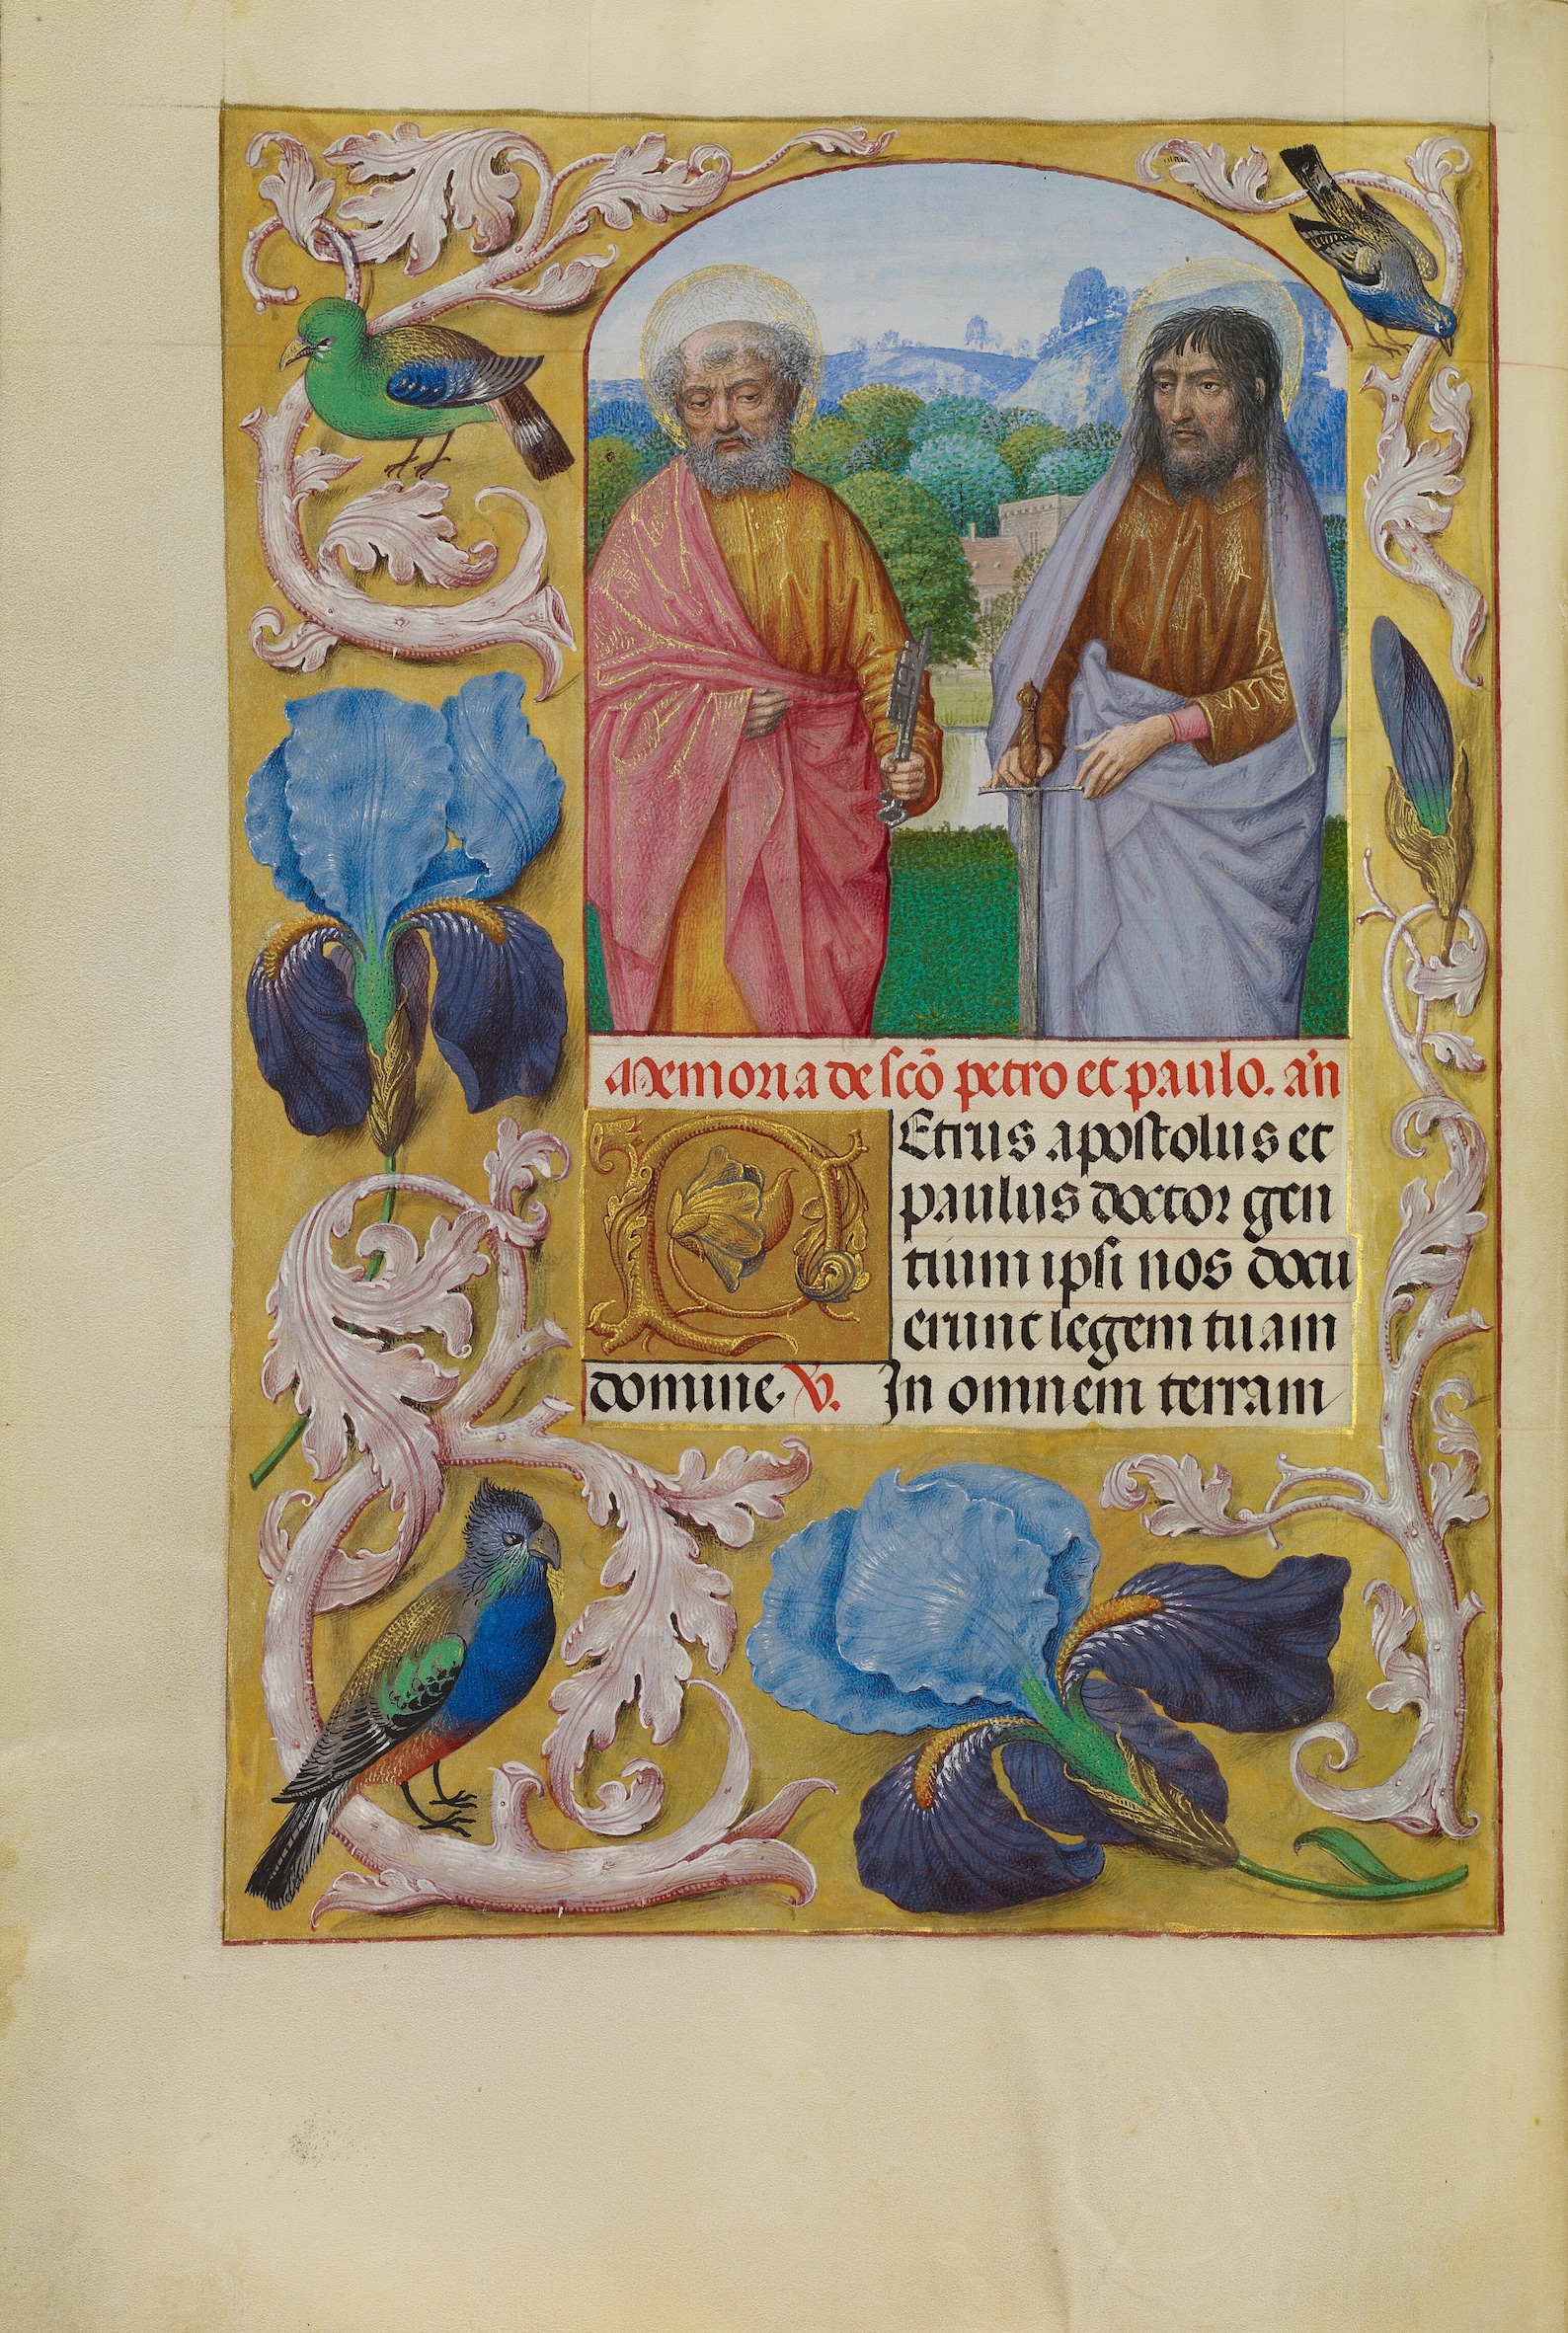 Memoria de scō petro et paulo. a'n
PEtrus apostolus et
paulus doctor gen
tium ipsi nos docu
erunt legem tuam
domine. V. In omnem terram